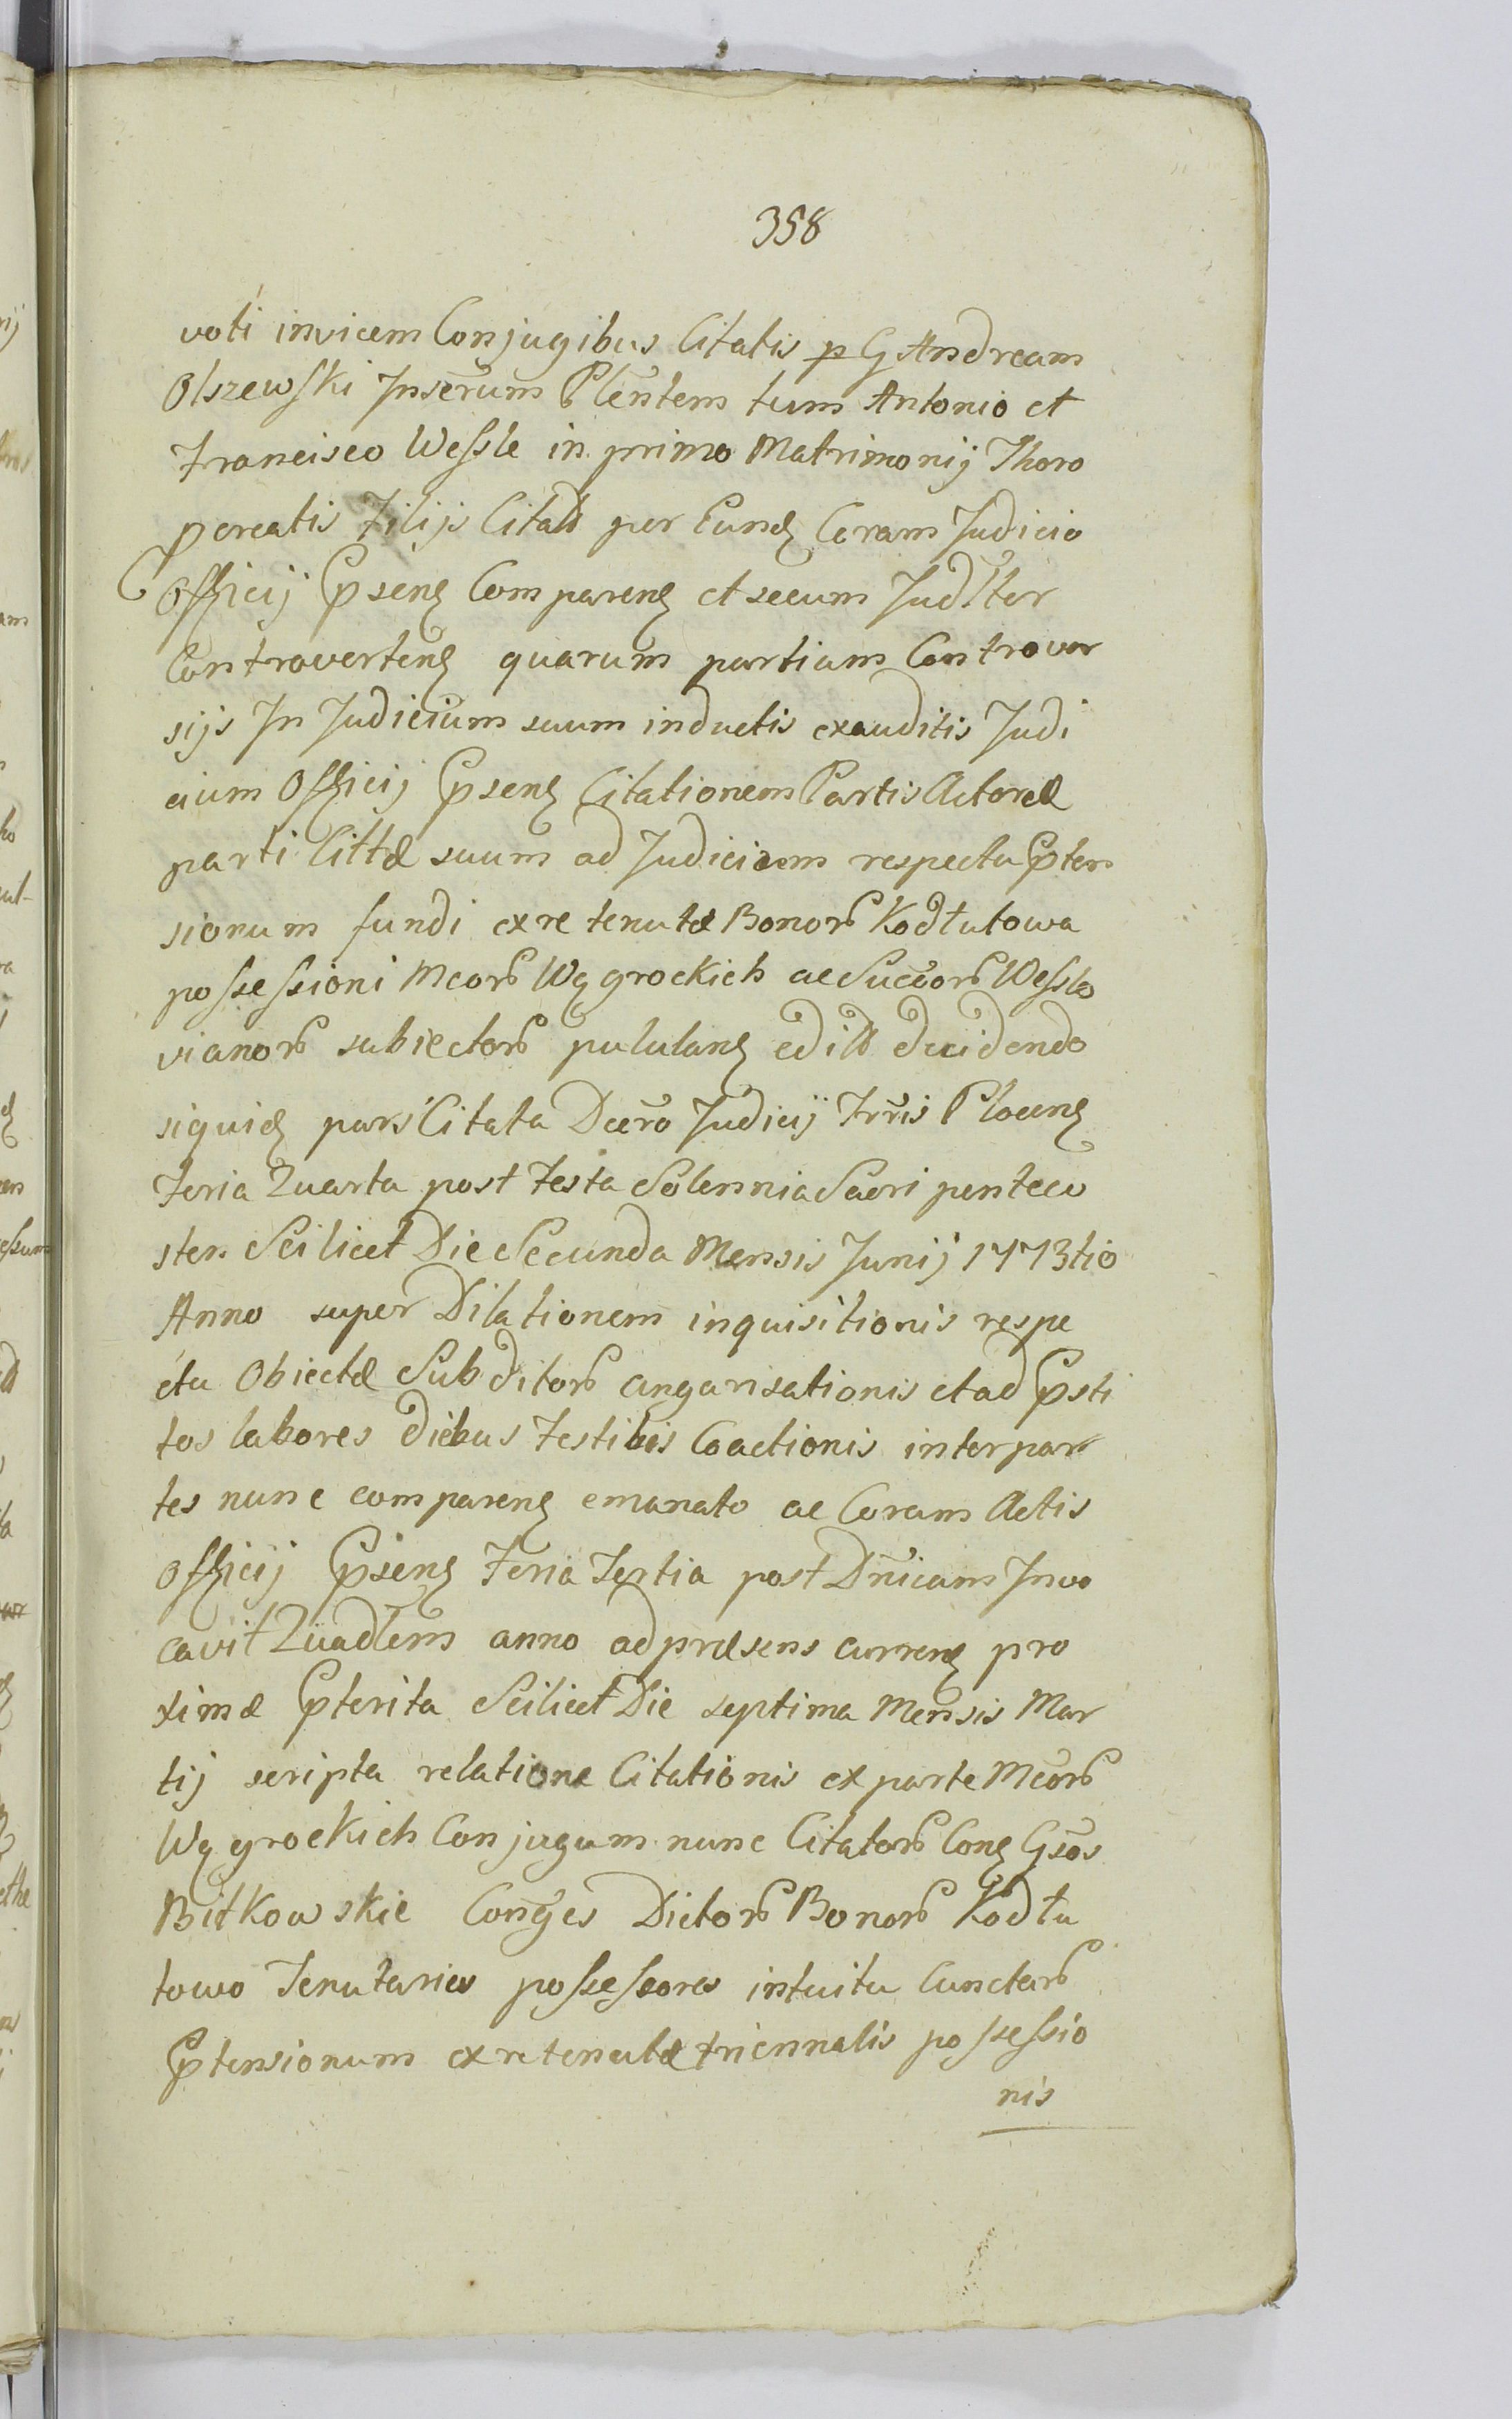 358
voti invicem Conjugibus Citatis p G Andream
Olszewski Inserum Plentem tum Antonio et
Francisco Wessle in primo Matrimonij Thoro
pcreatis Filijs Citatis per Eund Coram Judicio
Officij Psenti Comparen et secum Judlter
Controverten quarum partium Controver
sijs In Judicium suum inductis exauditis Judi
cium Officij Psen Citationem Partis Actoreæ
parti Cittæ suum ad Judicium respectu Pten
sionum fundi ex re tenutæ Bonor Kodłutowa
possessioni Mcor Wągrockich ac Succor Wesslo
vianor subiector pululan edit decidendo
siquid pars Citata Dcero Judicij Trris Plocen
Feria Quarta post Festa Solennia Sacri penteco
sten Scilicet Die Secunda Mensis Junij 1773tio
Anno super Dilationem inquisitionis respe
ctu Obiectæ Subditor angarisationis et ad Psti
tos labores diebus Festibis Coactionis inter par
tes nunc comparen emanato ac Coram Actis
Officij Psien Feria Tertia post Dnicam Invo
cavit Quadlem anno ad præsens curren pro
ximæ Pterita Scilicet Die septima Mensis Mar
tij scripta relatione Citationis ex parte Mcor
Wągrockich Conjugum nunc Citator Con Gsos
Bitkowskie Conges Dictor Bonor Kodłu
towo Tenutarios possessores intuitu Cunctar
Ptensionum ex re tenutæ triennalis possessio
nis